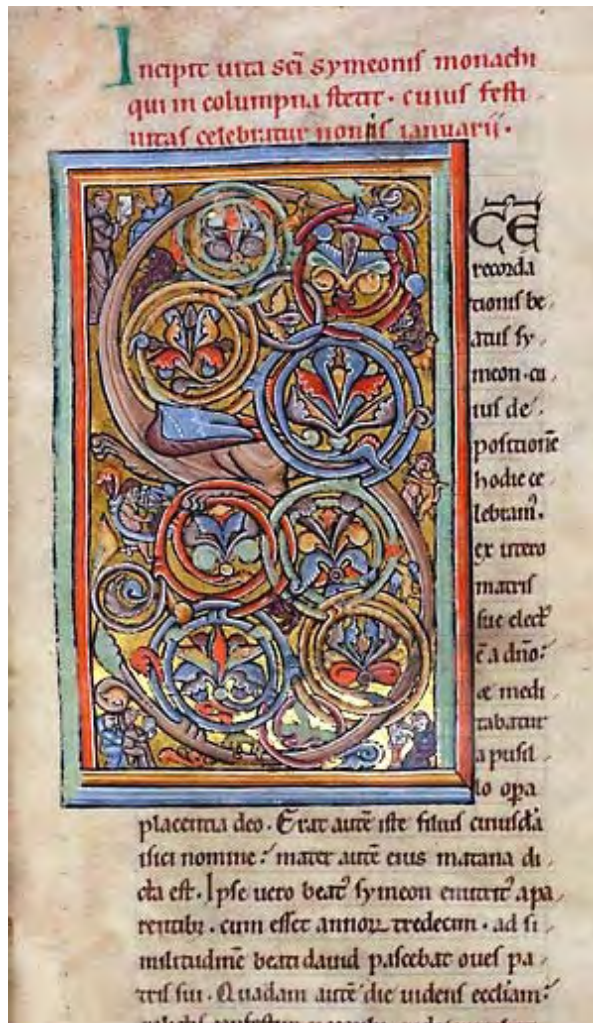 Incipit uita sc̄i symeonis monachi
qui in columpna stetit · cuius festi
uitas celebratur nonis ianuarij ·
S C̄E
recorda
tionis be
atus sy
meon · cu
ius de
positionē
hodie ce
lebram᷒ ·
ex utero
matris
sue elect᷒
ē a dn̄o ·
& medi
tabatur
a pusil
lo op̄a
placentia deo · Erat autē iste filius cuiusdā
isici nomine · mater autē eius matana di
cta est · Ipse uero beat᷒ symeon enutrit᷒ a pa
rentib; · cum esset annoꝝ tredecim · ad si
militudinē beati dauid pascebat oues pa
tris sui · Quadam autē die uidens eccliam